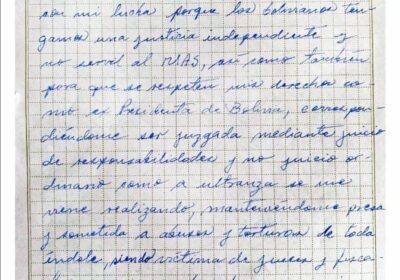 con mi lucha porque los bolivianos ten-
gamos una justicia independiente y
no servil al MAS, así como también
para que se respeten mis derechos co-
mo ex Presidenta de Bolivia, correspon-
diéndome ser juzgada mediante juicio
de responsabilidades y no juicio or-
dinario como a ultranza se me
viene realizando, manteniéndome presa
y sometida a abusos y torturas de toda
índole, siendo víctima de jueces y fisca-